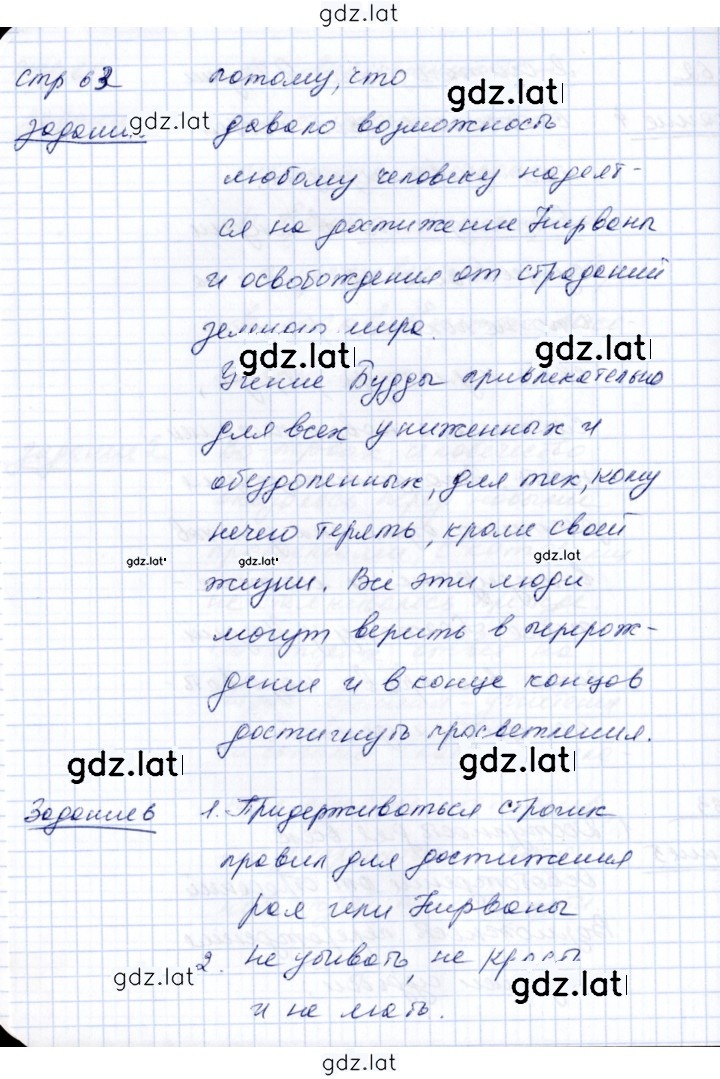 gdz.lat
стр 63 потому, что
gdz.lat
задание gdz.lat давало возможность
любому человеку надеят-
ся на достижение Нирваны
и освобождения от страданий
земного мира.
gdz.lat gdz.lat
Учение Будды привлекательно
для всех униженных и
обездоленных, для тех, кому
нечего терять, кроме своей
gdz.lat gdz.lat gdz.lat
жизни. Все эти люди
могут верить в перерож-
дение и в конце концов
достигнуть просветления.
gdz.lat gdz.lat
Задание 6 1. Придерживаться строгих
правил для достижения
рая или Нирваны
2. Не убивать, не красть
gdz.lat gdz.lat
и не лгать.
gdz.lat